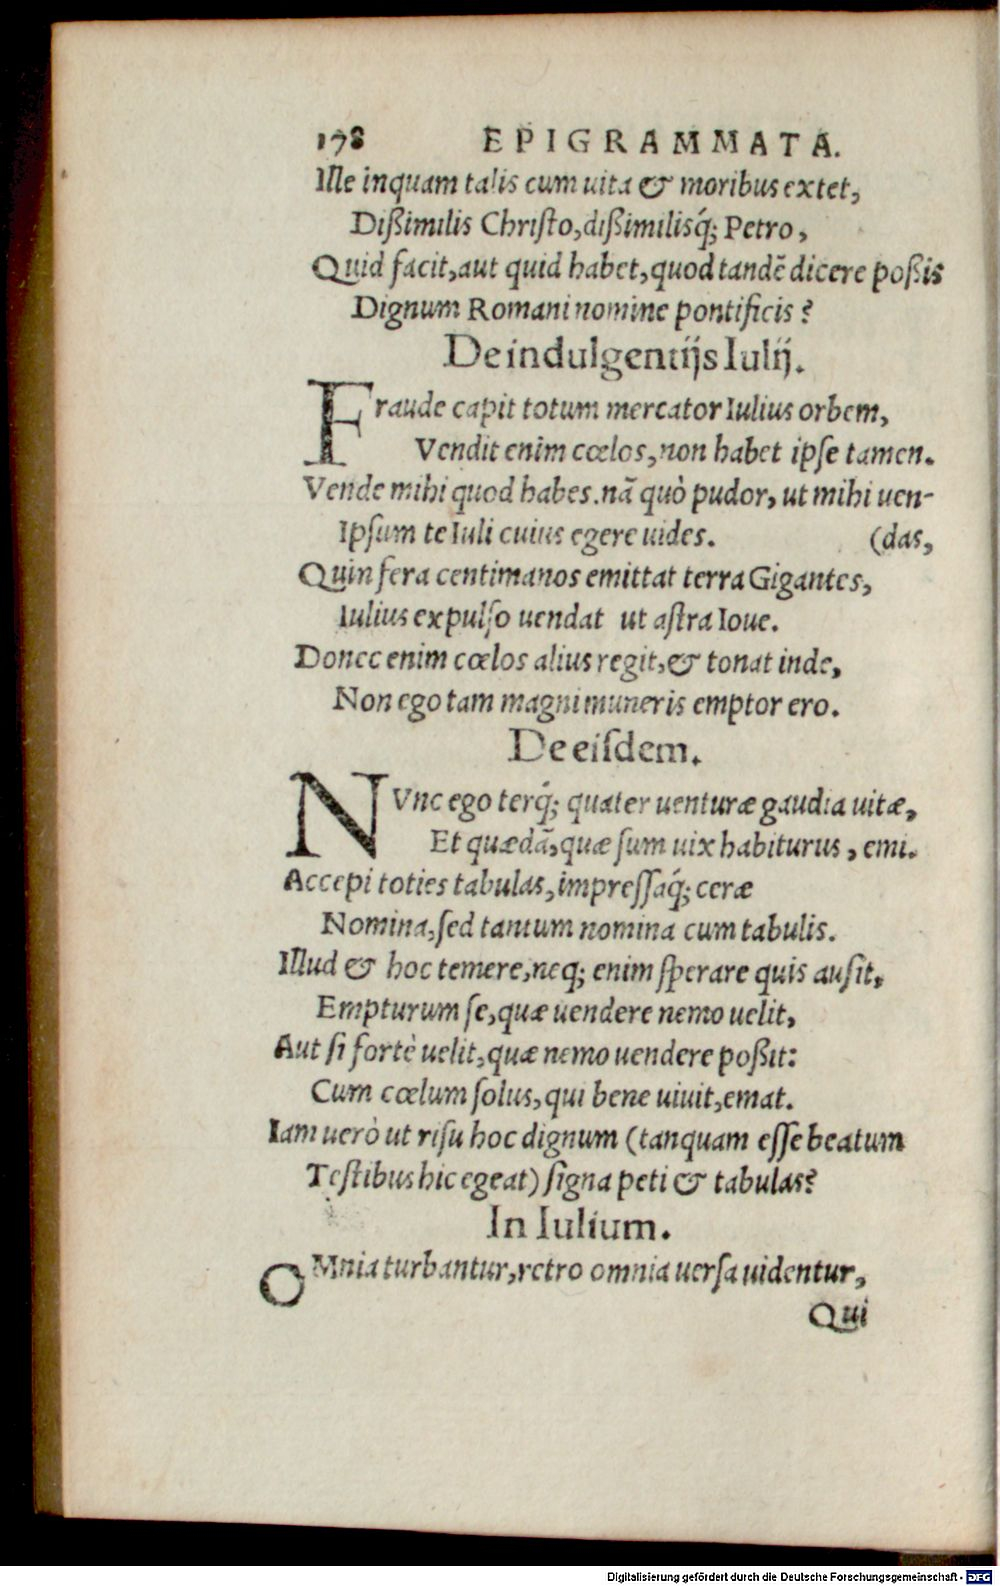 178 EPIGRAMMATA.
Ille inquam talis cum uita & moribus extet,
Dißimilis Christo, dißimilisq́; Petro,
Quid facit, aut quid habet, quod tandē dicere poßis
Dignum Romani nomine pontificis?
De indulgentijs Iulij.
Fraude capit totum mercator Iulius orbem,
Vendit enim cœlos, non habet ipse tamen.
Vende mihi quod habes. nā quò pudor, ut mihi uen-
Ipsum te Iuli cuius egere uides. (das,
Quin fera centimanos emittat terra Gigantes,
Iulius expulso uendat ut astra Ioue.
Donec enim cœlos alius regit, & tonat inde,
Non ego tam magni muneris emptor ero.
De eisdem.
NVnc ego terq́; quater uenturæ gaudia uitæ,
Et quædā, quæ sum uix habiturus, emi.
Accepi toties tabulas, impressaq́; ceræ
Nomina, sed tantum nomina cum tabulis.
Illud & hoc temere, neq; enim sperare quis ausit,
Empturum se, quæ uendere nemo uelit,
Aut si fortè uelit, quæ nemo uendere poßit:
Cum cœlum solus, qui bene uiuit, emat.
Iam uerò ut risu hoc dignum (tanquam esse beatum
Testibus hic egeat) signa peti & tabulas?
In Iulium.
OMnia turbantur, retro omnia uersa uidentur,
Qui
Digitalisierung gefördert durch die Deutsche Forschungsgemeinschaft - DFG